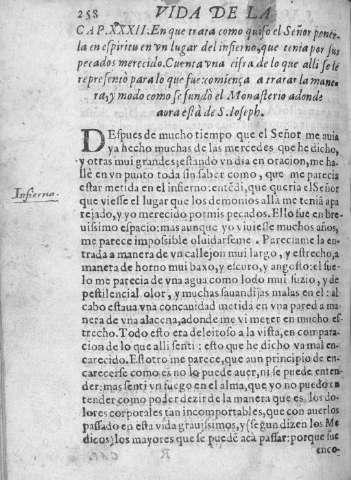 258 VIDA DE LA
CAP. XXXII. En que trata como quiso el Señor poner-
la en espiritu en vn lugar del infierno, que tenia por sus
pecados merecido. Cuenta vna cifra de lo que alli se le
representò para lo que fue comiença a tratar la mane-
ra, y modo como se fundò el Monasterio adonde
aora està de S. Ioseph.
DEspues de mucho tiempo que el Señor me auia
ya hecho muchas de las mercedes que he dicho,
y otras mui grandes; estando vn dia en oracion, me ha-
llè en vn punto toda sin saber como, que me parecia
estar metida en el infierno: entēdi, que queria el Señor
que viesse el lugar que los demonios allà me tenià apa
rejado, y yo merecido por mis pecados. Ello fue en bre
uissimo espacio: mas aunque yo viuiesse muchos años,
me parece impossible oluidarseme. Pareciame la en-
trada a manera de vn callejon mui largo, y estrecho, a
manera de horno mui baxo, y escuro, y angosto: el sue-
lo me parecia de vna agua como lodo mui suzio, y de
pestilencial olor, y muchas sauandijas malas en el: al
cabo estaua vna concauidad metida en vna pared a ma
nera de vna alacena, adonde me vi meter en mucho es-
trecho. Todo esto era deleitoso a la vista, en compara-
cion de lo que alli senti: esto que he dicho va mal en-
carecido. Estotro me parece, que aun principio de en-
carecerse como es no lo puede auer, ni se puede enten-
der: mas senti vn fuego en el alma, que yo no puedo en
tender como poder dezir de la manera que es, los do-
lores corporales tan incomportables, que con auerlos
passado en esta vida grauissimos, y (segun dizen los Me
dicos) los mayores que se puede acà passar: porque fue
enco-
Infierno.